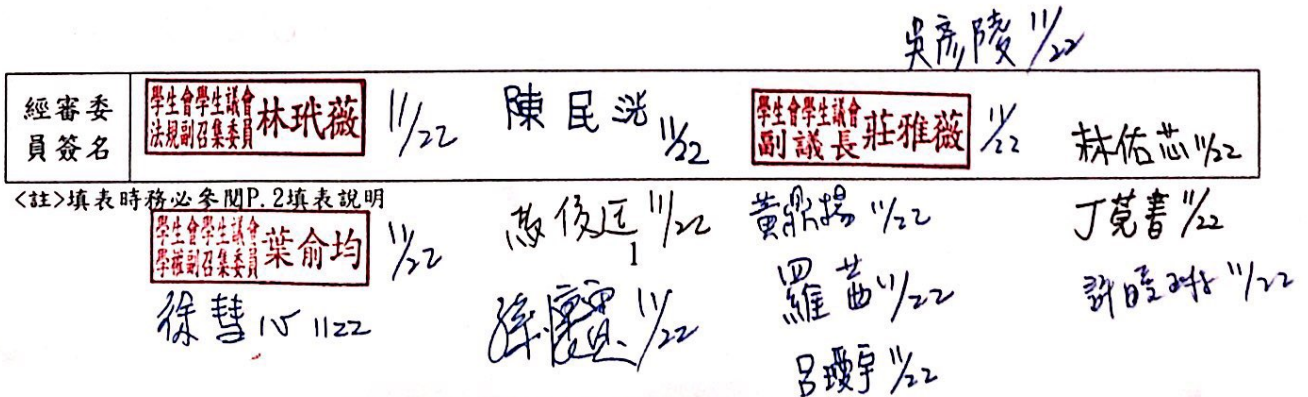 吳彥陵 11/22
經審委員簽名
學生會學生議會法規副召集委員 林玳薇 11/22
陳民洸 11/22
學生會學生議會副議長 莊雅薇 11/22
林佑芯 11/22
<註>填表時務必參閱P.2填表說明
學生會學生議會學權副召集委員 葉俞均 11/22
俊廷 11/22
黃鼎揚 11/22
丁莞書 11/22
1
徐慧心 1122
11/22
羅茜 11/22
許 11/22
呂璦宇 11/22